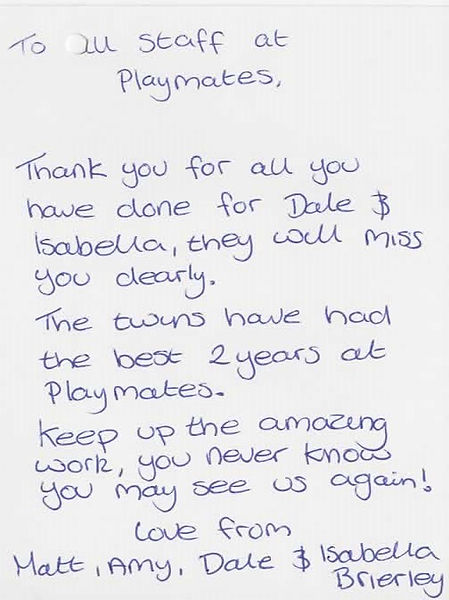 To all staff at
Playmates,
Thank you for all you
have done for Dale &
Isabella, they will miss
you dearly.
The twins have had
the best 2 years at
Playmates.
Keep up the amazing
work, you never know
you may see us again!
Love from
Matt, Amy, Dale & Isabella
Brierley